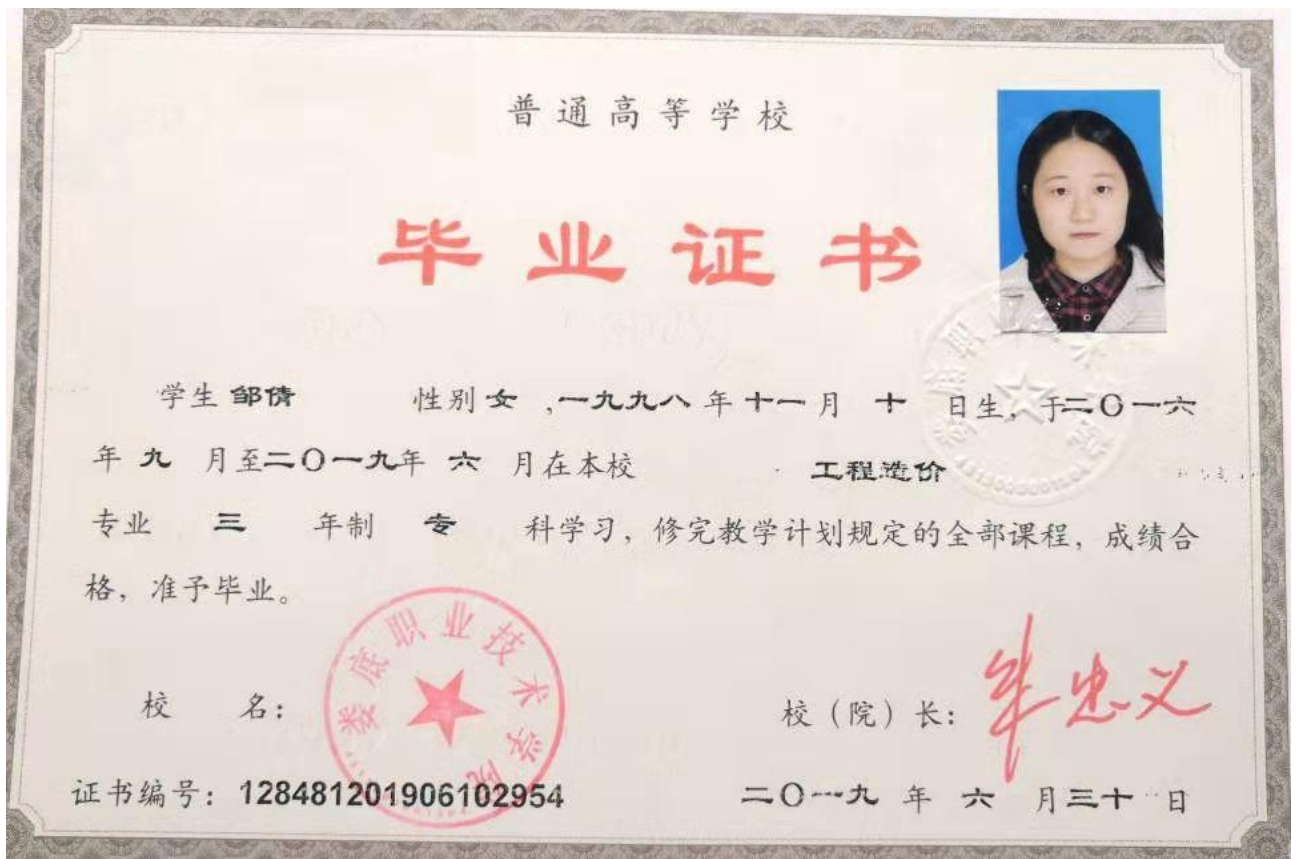 普通高等学校
毕业证书
学生 邹倩 性别 女 ,一九九八 年 十一 月 十 日生, 于二〇一六
年 九 月至二〇一九年 六 月在本校 工程造价
专业 三 年制 专 科学习, 修完教学计划规定的全部课程, 成绩合
格, 准予毕业。
娄底职业技术学院
校 名:
校（院）长:
证书编号: 128481201906102954
二〇一九 年 六 月三十 日